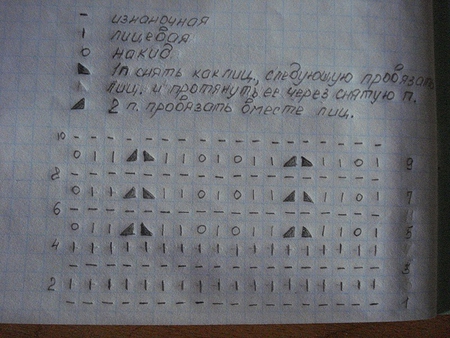 - изнаночная
ı лицевая
о накид
◣ 1п снять как лиц., следующую провязать
лиц. и протянуть ее через снятую п.
◢ 2 п. провязать вместе лиц.
10 - - - - - - - - - - - - - - - - - -
о ı ı ◢ ◣ ı ı о ı о ı ı ◢ ◣ ı ı о ı 9
8 - - - - - - - - - - - - - - - - - -
о ı ı ◢ ◣ ı ı о ı о ı ı ◢ ◣ ı ı о ı 7
6 - - - - - - - - - - - - - - - - - -
о ı ı ◢ ◣ ı ı о ı о ı ı ◢ ◣ ı ı о ı 5
4 ı ı ı ı ı ı ı ı ı ı ı ı ı ı ı ı ı ı
- - - - - - - - - - - - - - - - - - 3
2 ı ı ı ı ı ı ı ı ı ı ı ı ı ı ı ı ı ı
- - - - - - - - - - - - - - - - - - 1